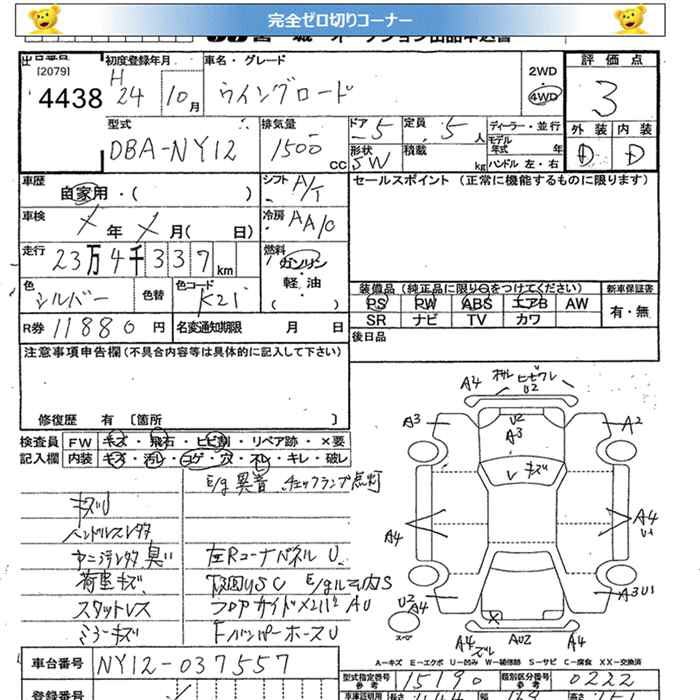 完全ゼロ切りコーナー
出品番号 初度登録年月 車名・グレード 2WD 評価点
[2079]
4438 H 24 10月 ウイングロード 4WD 3
外装 内装
D D
型式 排気量 ドア 5 定員 5人 ディーラー・並行
DBA-NY12 1500 CC 形状 SW 積載 kg モデル年式 年
ハンドル 左・右
車歴 自家用・( ) シフト A/T セールスポイント (正常に機能するものに限ります)
車検 年 月( 日) 冷房 AA/C
走行 23万4千337km 燃料 ガソリン
軽・油
( )
色 シルバー 色替 色コード K21
装備品 (純正品に限り○をつけてください) 新車保証書
PS PW ABS エアB AW 有・無
SR ナビ TV カワ
R券 11880円 名変通知期限 月 日 後日品
注意事項申告欄 (不具合内容等は具体的に記入して下さい)
修復歴 有 [箇所 ]
検査員 FW キズ・飛石・ヒビ割・リペア跡・×要
記入欄 内装 キズ・汚レ・コゲ・穴・スレ・キレ・破レ
E/g異音 チェックランプ点灯
キズU
ハンドルスレタタ
臭い 左RコーナパネルU
荷室キズ 下回りSC
スタットレス フロアサイドメンバAU
ミラーキズ FバンパーホースU
A4 ヒビワレ U2
A3 U2 A2
A3
V キズ
A4 A4 U1
U2 A4 A3U1
スペアー X
A4 AU2 A4
A-キズ E-エクボ U-凹み W-補修跡 S-サビ C-腐食 XX-交換済
車台番号 NY12-037557
型式指定番号 15190 類別区分番号 0222
登録番号